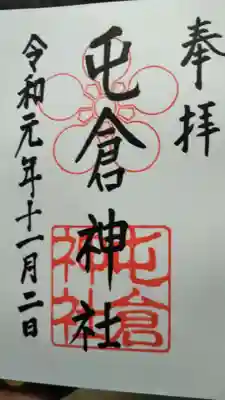 奉拝
屯倉神社
令和元年十一月二日
屯倉
神社